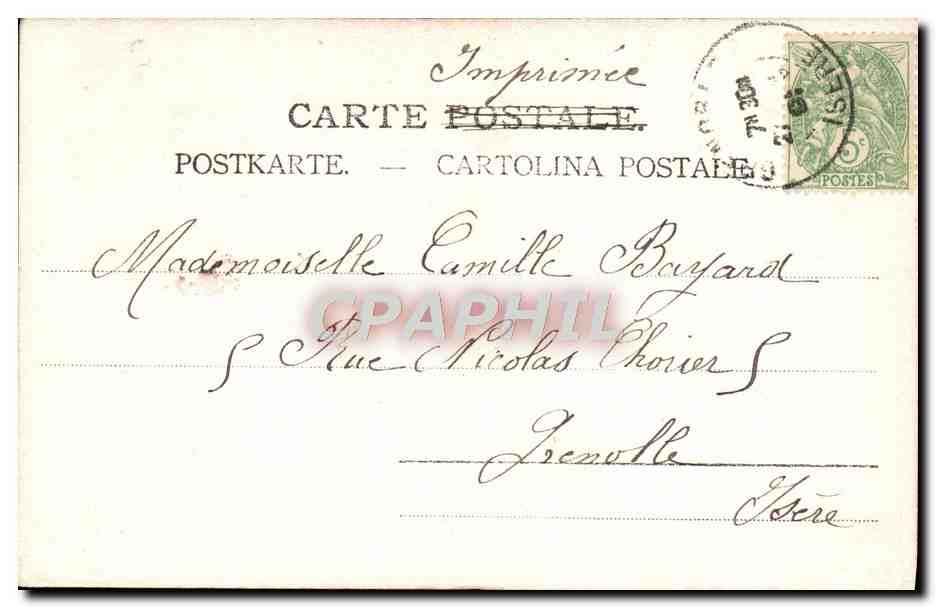 Imprimée
CARTE POSTALE.
POSTKARTE. — CARTOLINA POSTALE
Mademoiselle Camille Bayard
5 Rue Nicolas Chorier 5
Grenoble
Isère
ISERE
5c
POSTES
CPAPHIL